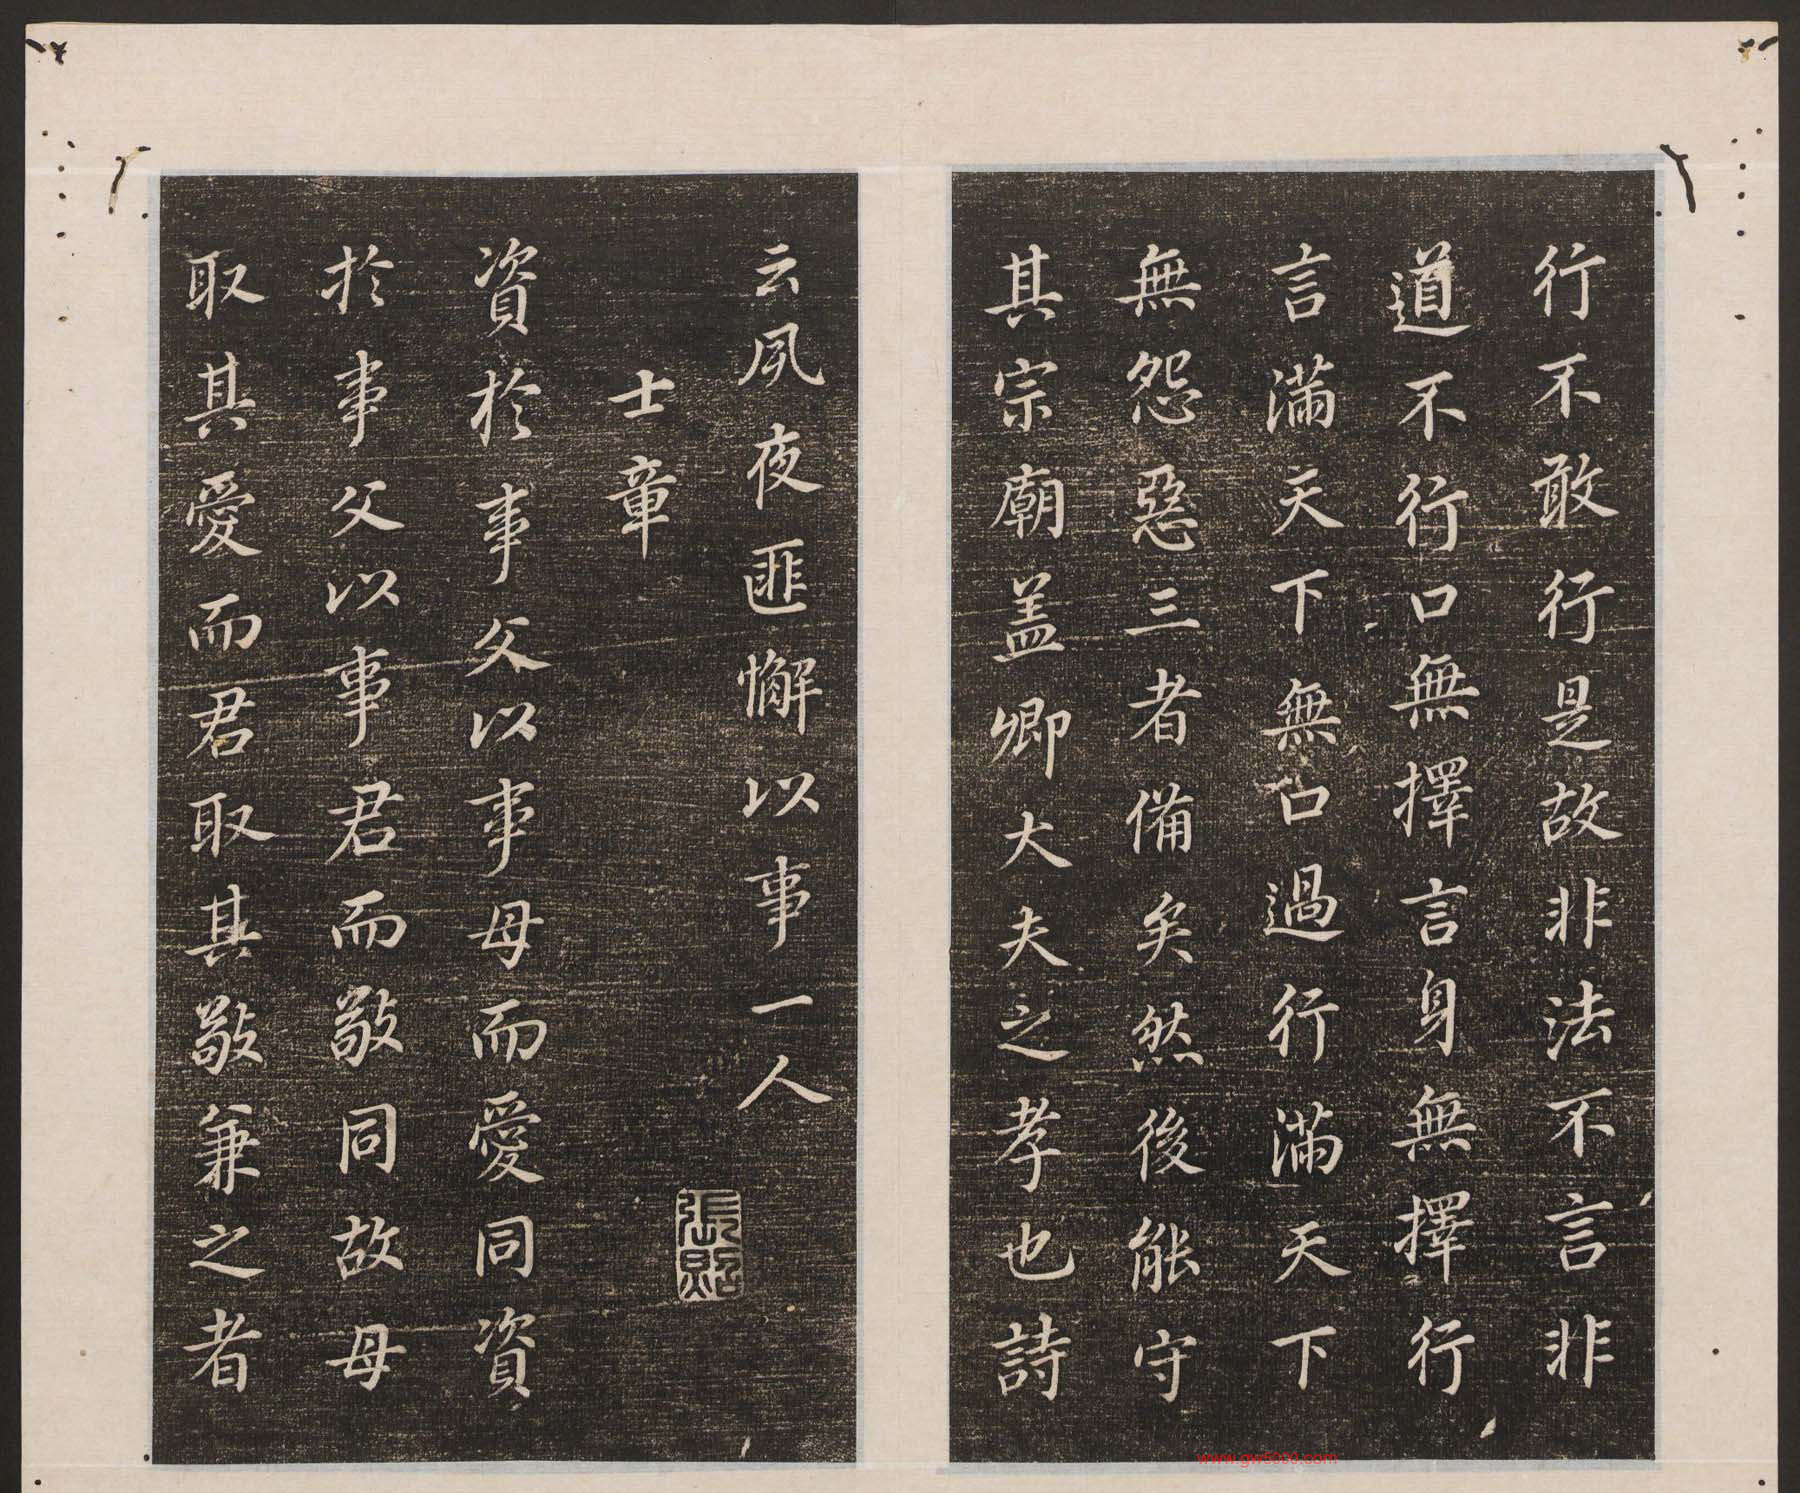 行不敢行是故非法不言非
道不行口無擇言身無擇行
言滿天下無口過行滿天下
無怨惡三者備矣然後能守
其宗廟盖卿大夫之孝也詩
云夙夜匪懈以事一人
士章
資於事父以事母而愛同資
於事父以事君而敬同故母
取其愛而君取其敬兼之者
張照
www.gw5000.com